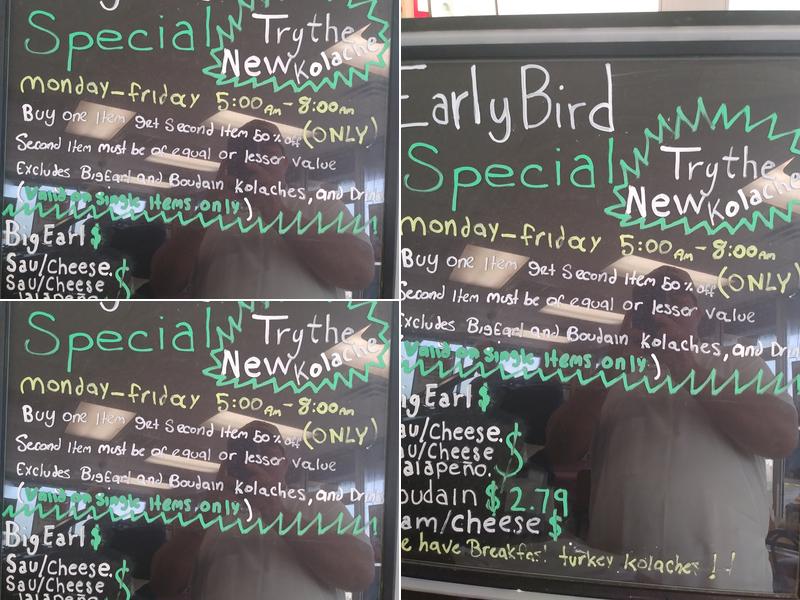 Special
Try the
New Kolache
monday-friday 5:00 Am - 8:00 am
Buy one Item get Second Item 50% off (ONLY)
Second Item must be of equal or lesser value
Excludes BigEarl and Boudain Kolaches, and
(Valid on Single Items only)
BigEarl $
Sau/Cheese. $
Sau/Cheese
Jalapeño
Special
Try the
New Kolache
monday-friday 5:00 Am - 8:00 am
Buy one Item get Second Item 50% off (ONLY)
Second Item must be of equal or lesser value
Excludes BigEarl and Boudain Kolaches, and
(Valid on Single Items only)
BigEarl $
Sau/Cheese. $
Sau/Cheese
Jalapeño
Early Bird
Special
Try the
New Kolache
monday-friday 5:00 Am - 8:00 am
Buy one Item get Second Item 50% off (ONLY)
Second Item must be of equal or lesser value
Excludes BigEarl and Boudain Kolaches, and
(Valid on Single Items only)
igEarl $
au/Cheese. $
au/Cheese
alapeño.
oudain $2.79
am/cheese $
e have Breakfast turkey Kolaches !!